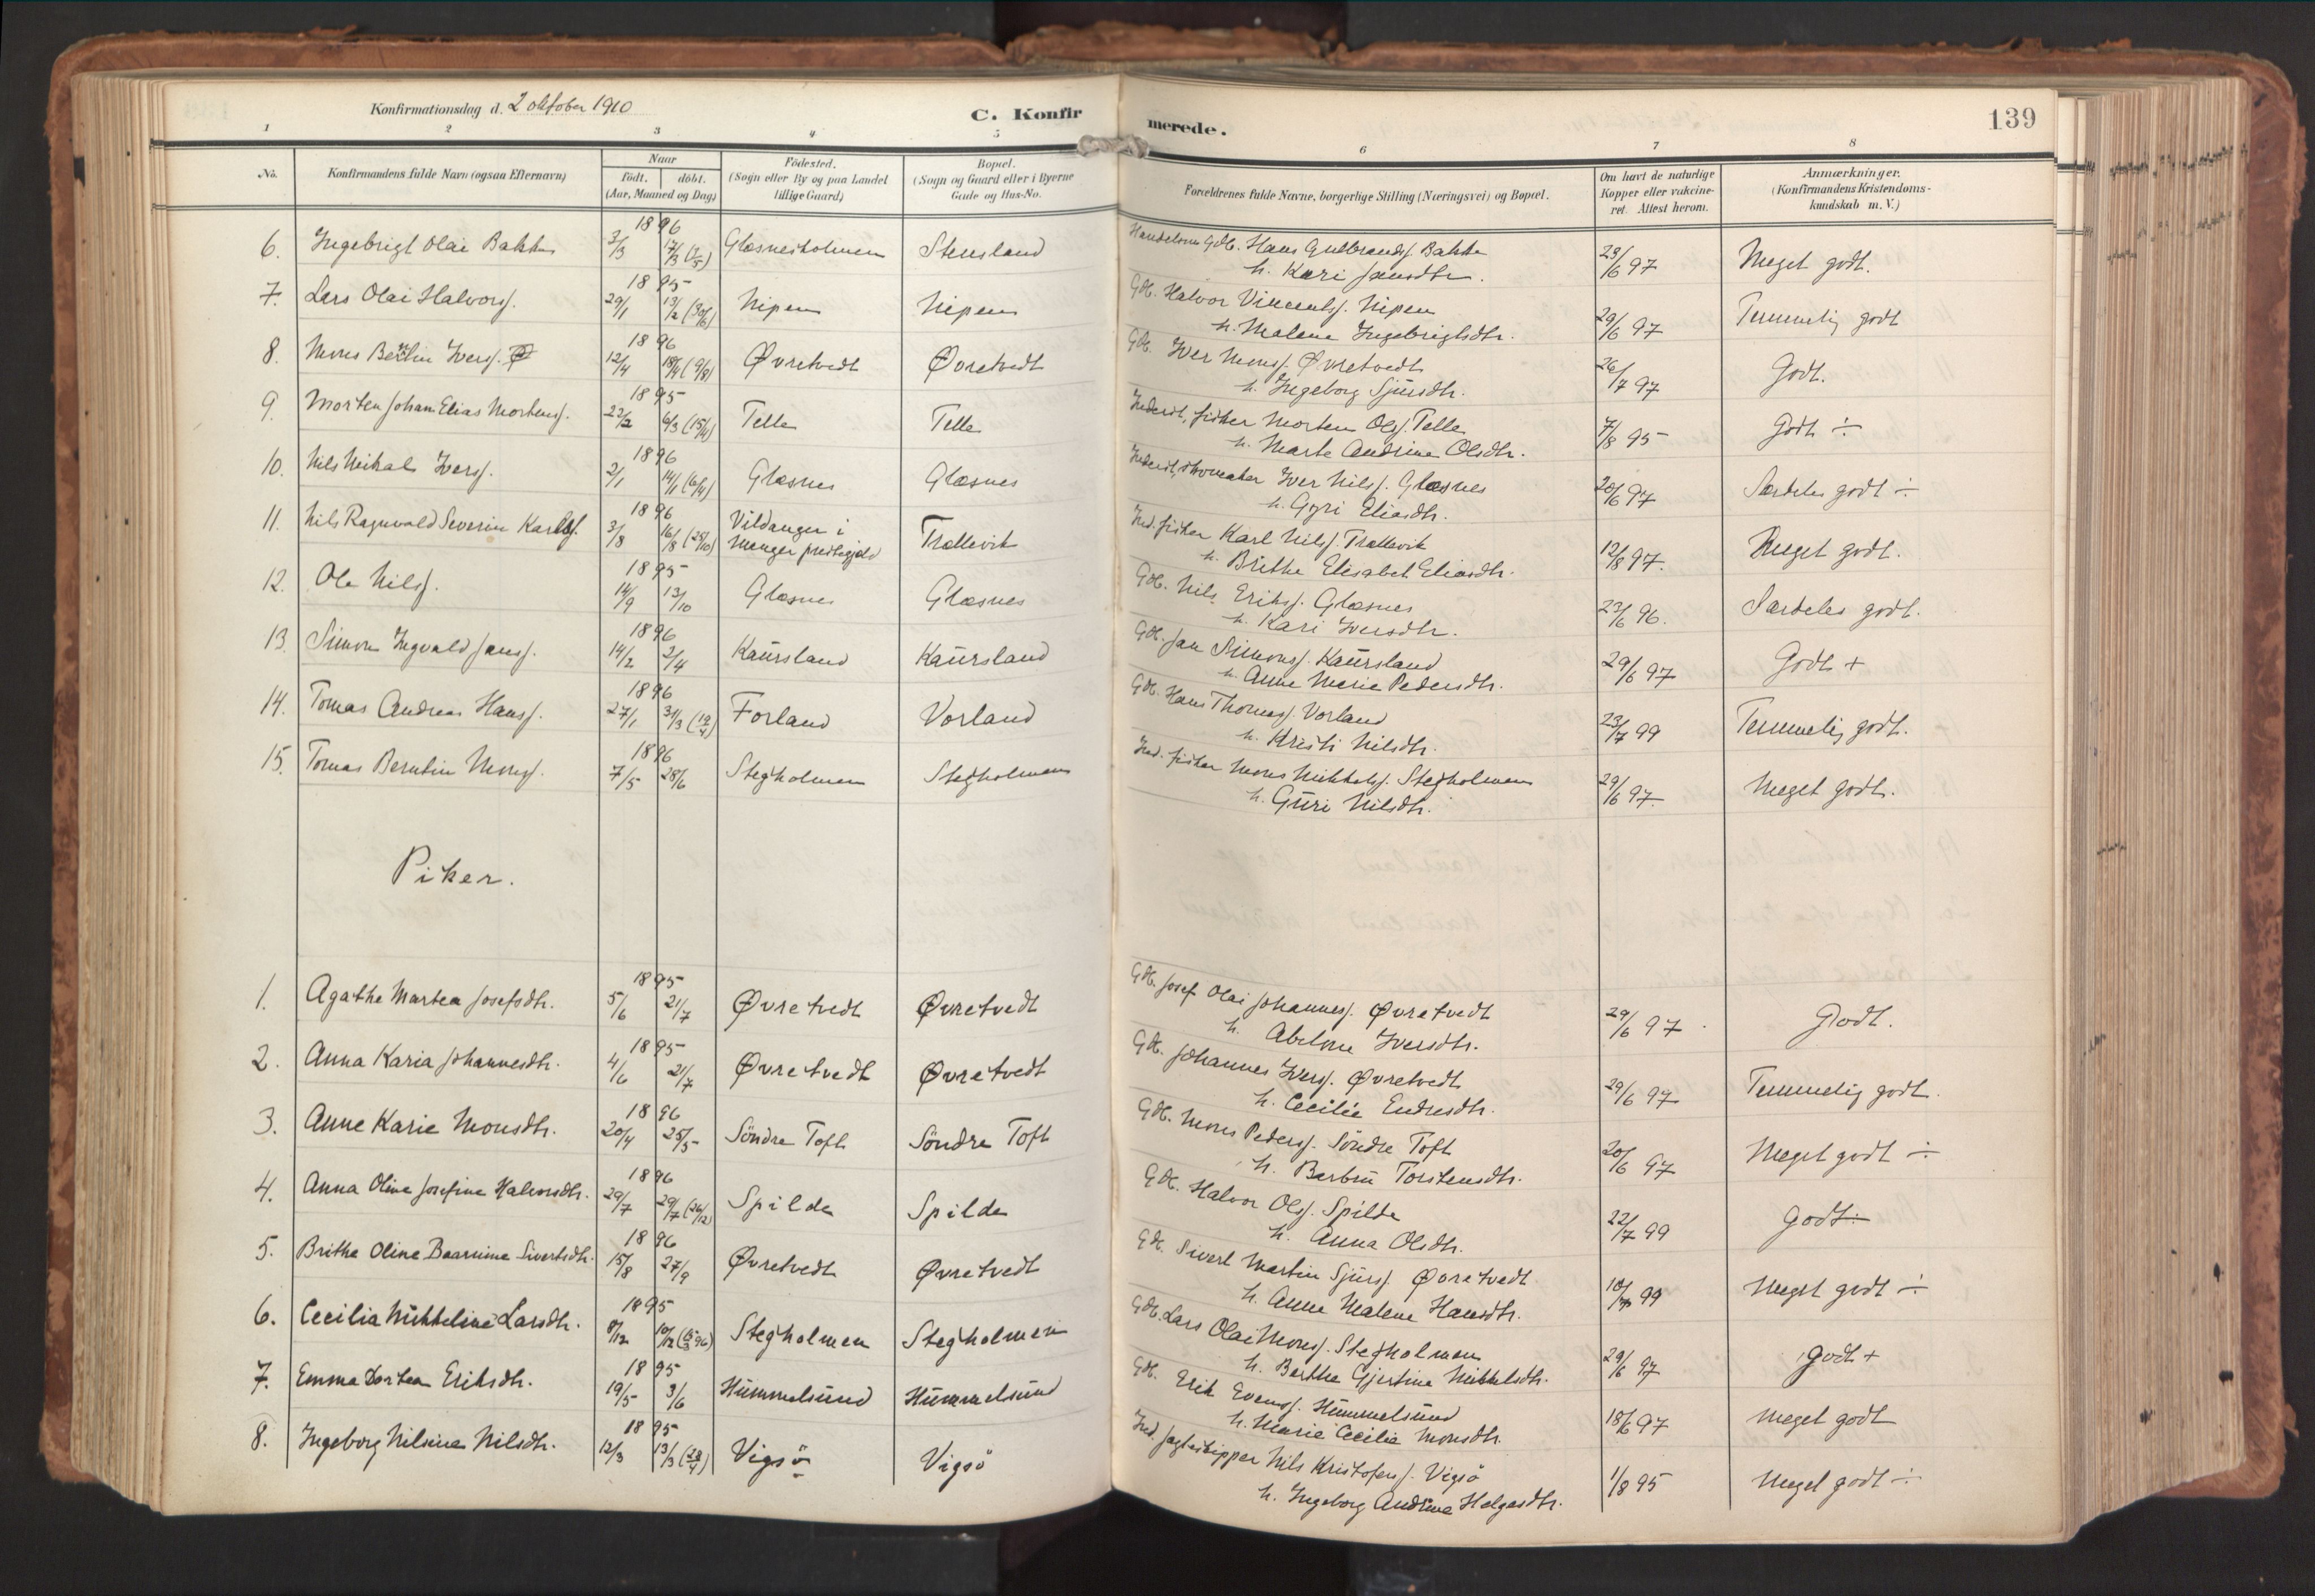 Konfirmationsdag d. 2 oktober 1910
C. Konfirmerede.
139
1 2 3 4 5 6 7 8
No. Konfirmandens fulde Navn (ogsaa Efternavn) Naar født. døbt. (Aar, Maaned og Dag) Födested. (Sogn eller By og paa Landet tillige Gaard) Bopæl. (Sogn og Gaard eller i Byerne Gade og Hus-No. Forældrenes fulde Navne, borgerlige Stilling (Næringsvei) og Bopæl. Om havt de naturlige Kopper eller vakcineret. Attest herom. Anmærkninger. (Konfirmandens Kristendomskundskab m. V.)
6. Ingebrigt Olai Bakke 1896 3/3 17/3 (3/5) Glæsnesholmen Stensland Hans Gulbrands. Bakke 23/6 97 Meget godt.
h. Kari Jansdtr.
7. Lars Olai Halvors. 1895 29/1 13/2 (30/6) Nipen Nipen Gdb. Halvor Vincents. Nipen 29/6 97 Temmelig godt
h. Malene Ingebrigtsdtr.
8. Mons Berntin Ivers. Ø 1896 12/4 18/4 (9/8) Øvretvedt Øvretvedt Gdb. Iver Mons. Øvretvedt 26/7 97 Godt.
h. Ingeborg Sjursdtr.
9. Morten Johan Elias Mortens. 1895 22/2 6/3 (15/4) Telle Telle Inderst, fisker Morten Ols. Telle 7/8 95 Godt ÷
h. Marte Andrine Olsdtr.
10. Nils Mikal Ivers. 1896 2/1 14/1 (6/4) Glæsnes Glæsnes Inderst, skomaker Iver Nils. Glæsnes 20/6 97 Særdeles godt ÷
h. Gyri Eliasdtr.
11. Nils Ragnvald Severin Karls. 1896 3/8 16/8 (25/10) Vildanger i Manger prestegjeld Trællevik Ind. fisker Karl Nils. Trællevik 12/8 97. Meget godt.
h. Brithe Elisabet Eliasdtr.
12. Ole Nils. 1895 14/9 13/10 Glæsnes Glæsnes Gdb. Nils Eriks. Glæsnes 23/6 96. Særdeles godt.
h. Kari Iversdtr.
13. Simon Ingvald Jans. 1896 14/2 2/4 Kaursland Kaursland Gdb. Jan Simons. Kaursland 29/6 97 Godt +
h. Anne Marie Pedersdtr.
14. Tomas Andreas Hans. 1896 27/1 31/3 (12/4) Forland Vorland Gdb. Hans Thomas. Vorland 23/7 99 Temmelig godt.
h. Kristi Nilsdtr.
15. Tomas Berntin Mons. 1896 7/5 28/6 Stegholmen Stegholmen Ind. fisker Mons Mikkels. Stegholmen 29/6 97 Meget godt.
h. Guri Nilsdtr.
Piker.
1. Agathe Martea Josefsdtr. 1895 5/6 21/7 Øvretvedt Øvretvedt Gdb. Josef Olai Johannes. Øvretvedt 29/6 97 Godt.
h. Abelone Iversdtr.
2. Anna Karia Johannesdtr. 1895 4/6 21/7 Øvretvedt Øvretvedt Gdb. Johannes Ivers. Øvretvedt 29/6 97 Temmelig godt.
h. Cecilie Endresdtr.
3. Anne Karie Monsdtr. 1896 20/4 25/5 Söndre Toft Söndre Toft Gdb. Mons Peders. Söndre Toft 20/6 97 Meget godt ÷
h. Berbru Torstensdtr.
4. Anna Oline Josefine Halvorsdtr. 1896 29/7 29/7 (26/12) Spilde Spilde Gdb. Halvor Ols. Spilde 22/7 99 Godt ÷
h. Anna Olsdtr.
5. Brithe Oline Sivertsdtr. 1896 15/8 27/9 Øvretvedt Øvretvedt Gdb. Sivert Martin Sjurs. Øvretvedt 18/7 99 Meget godt ÷
h. Anne Malene Hansdtr.
6. Cecilia Mikkeline Larsdtr. 1895 8/12 10/12 Stegholmen Stegholmen Gdb. Lars Olai Mons. Stegholmen 29/6 97 Godt +
h. Berthe Gjertine Mikkelsdtr.
7. Emma Dortea Eriksdtr. 1895 19/5 3/6 Hummelsund Hummelsund Gdb. Erik Evens. Hummelsund 18/6 97 Meget godt
h. Marie Cecilie Monsdtr.
8. Ingeborg Nilsine Nilsdtr. 1895 12/3 13/3 (28/4) Vigsö Vigsö Ind. Jagteskipper Nils Kristofers. Vigsö 1/8 95 Meget godt ÷
h. Ingeborg Andrine Helgesdtr.